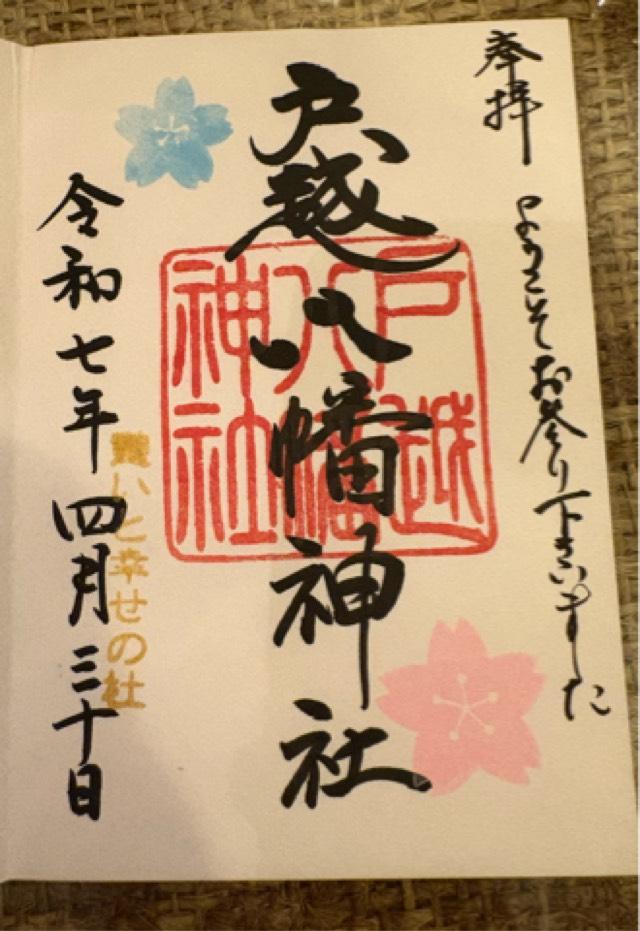 奉拝 ようこそお参り下さいました
戸越八幡神社
戸越
八幡
神社
令和七年四月三十日
いと幸せの社